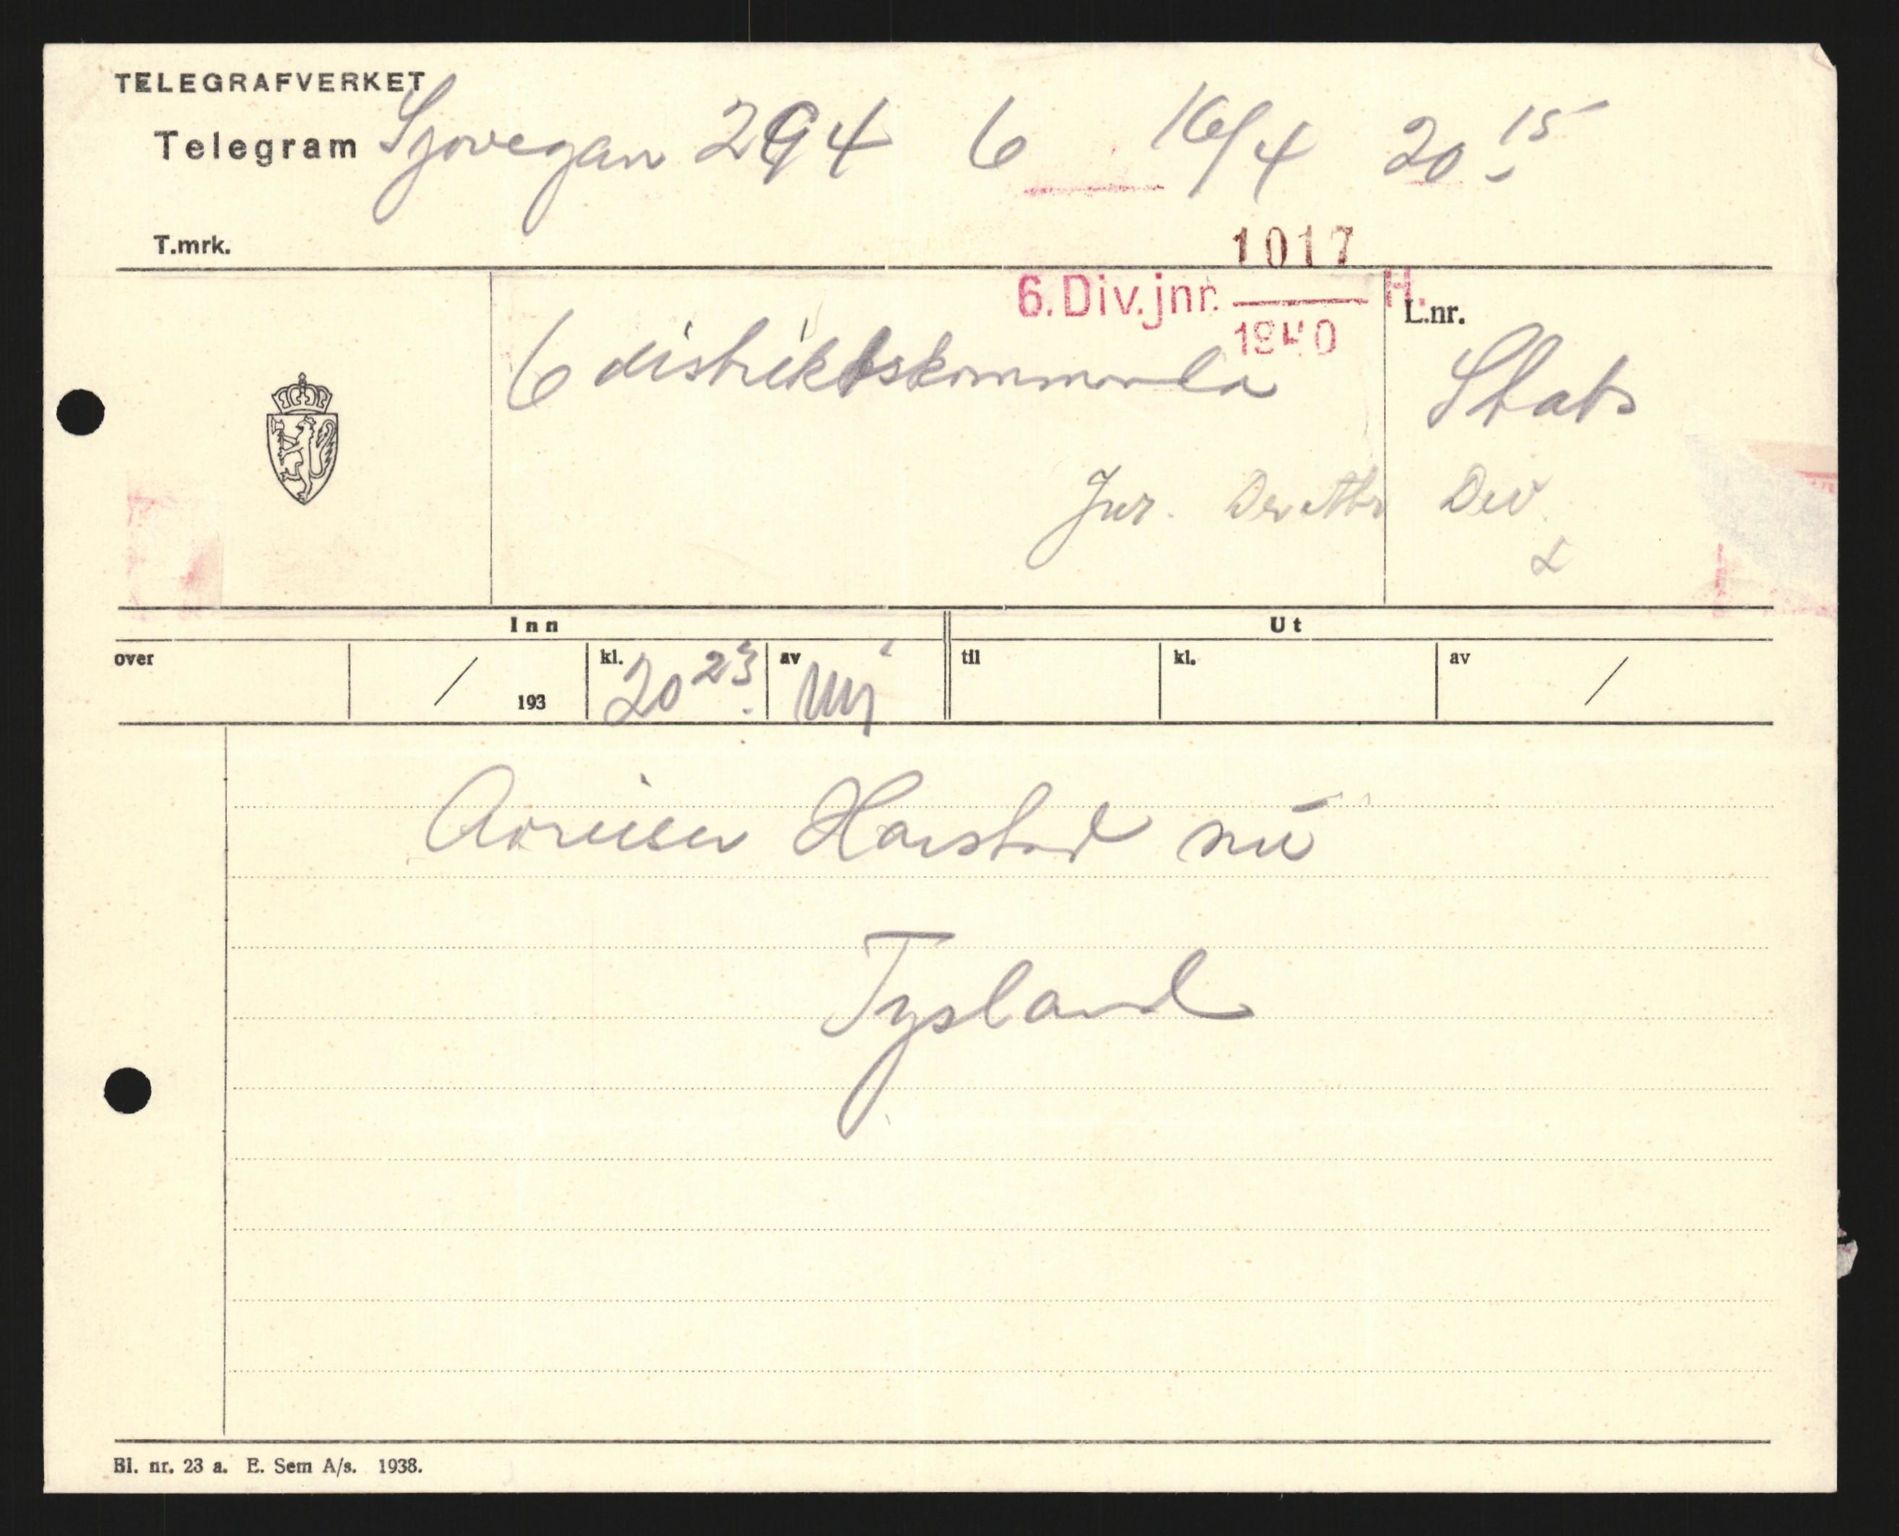 TELEGRAFVERKET
Telegram Sjøvegan 294 6 16/4 20 15
T.mrk.
1017
6. Div. jnr. H.
1940
L.nr.
6 distriktskommando Stats
Jnr. Div
Inn Ut
over / 193 kl. 20 23 av til kl. av /
Avreiser Harstad nu
Tysland
Bl. nr. 23 a. E. Sem A/s. 1938.